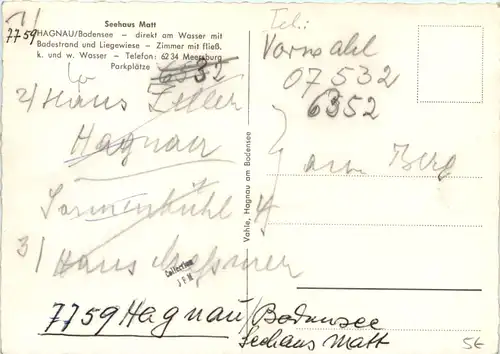 1/
7759
Seehaus Matt
HAGNAU/Bodensee – direkt am Wasser mit
Badestrand und Liegewiese – Zimmer mit fließ.
k. und w. Wasser – Telefon: 6234 Meersburg
Parkplätze 6532
2/ Haus Zeller
Hagnau
Sonnenbühl 4
3/ Haus
Collection
J F M
7759 Hagnau/Bodensee
Seehaus Matt
Vahle, Hagnau am Bodensee
Tel.:
Vorwahl
07532
6352
am Berg
5€